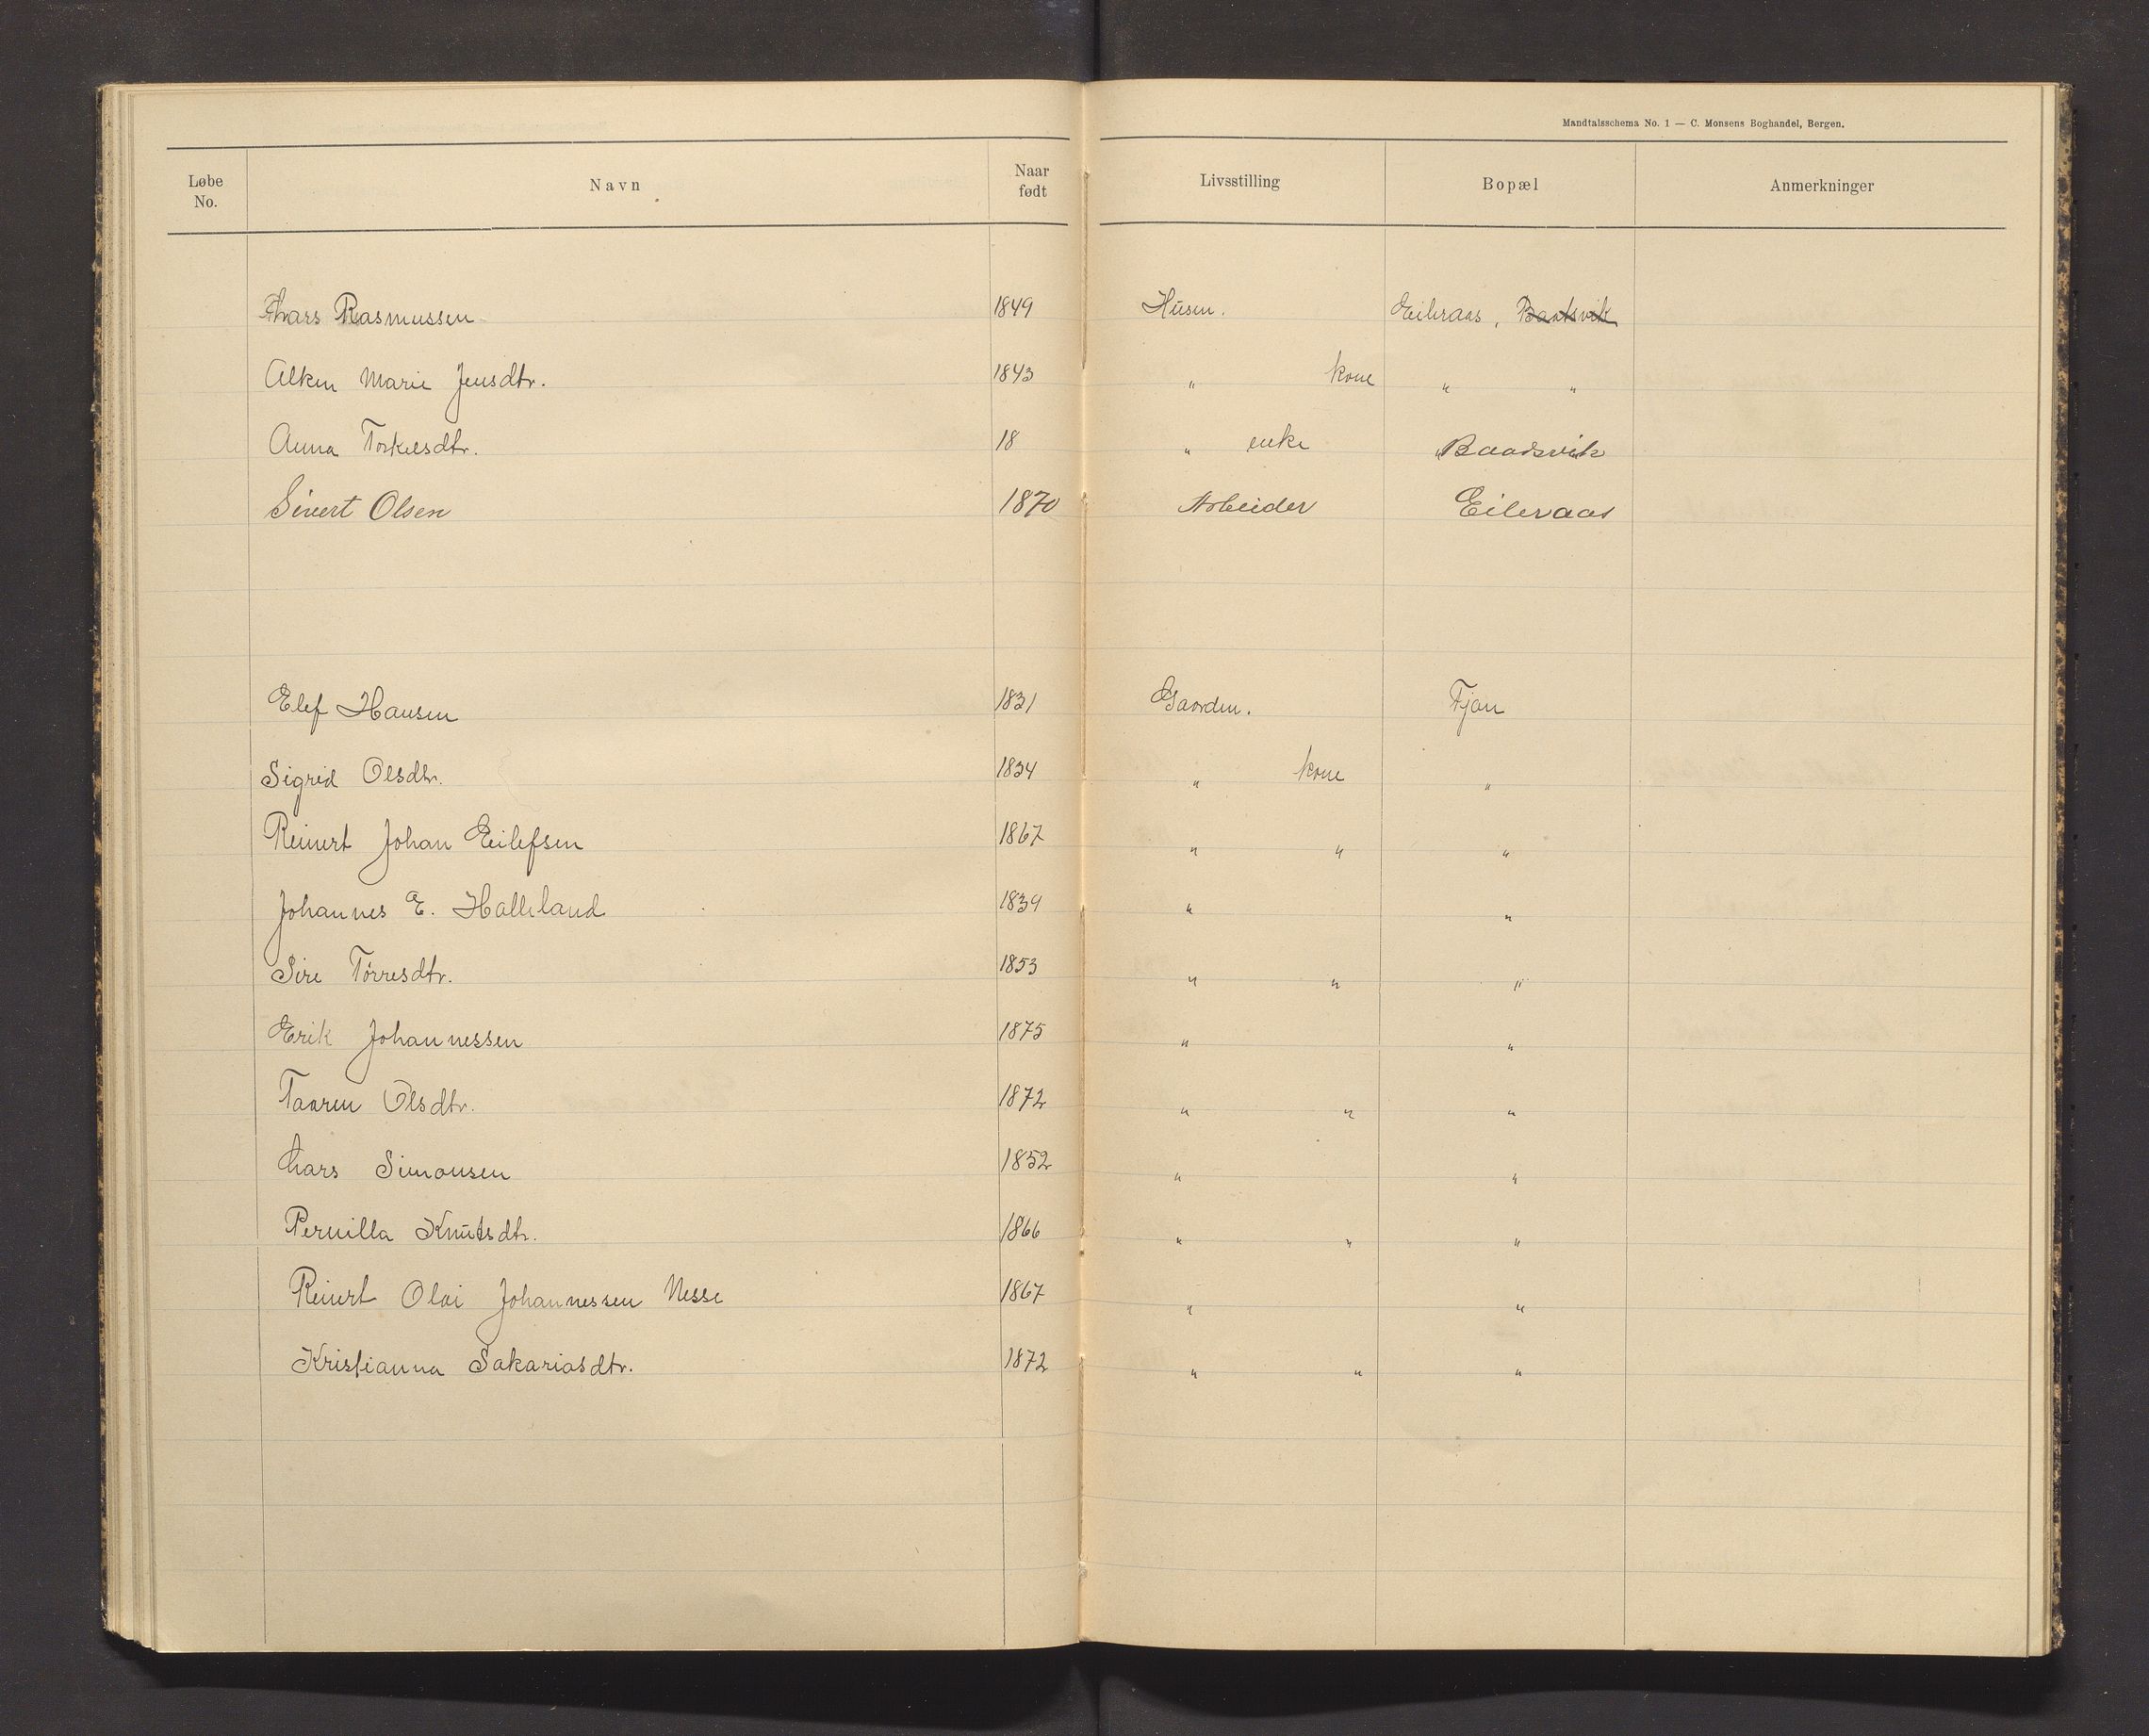 Mandtalsschema No. 1 — C. Monsens Boghandel, Bergen.
Løbe No. Navn Naar født Livsstilling Bopæl Anmerkninger
Lars Rasmussen 1849 Husm. Eileraas, Baatsvik
Alken Marie Jensdtr. 1843 " kone " "
Anna Torkelsdtr. 18 " enke " Baadsvik
Sivert Olsen 1870 Arbeider Eileraas
Elef Hansen 1831 Gaardm. Fjon
Sigrid Olsdtr. 1834 " kone "
Reinert Johan Eilefsen 1867 " " "
Johannes E. Halleland 1839 " "
Sire Tørresdtr. 1853 " " "
Erik Johannessen 1875 " "
Taaren Olsdtr. 1872 " " "
Lars Simonsen 1852 " "
Pernilla Knutsdtr. 1866 " " "
Reinert Olai Johannessen Nesse 1867 " "
Kristianna Sakariasdtr. 1872 " " "